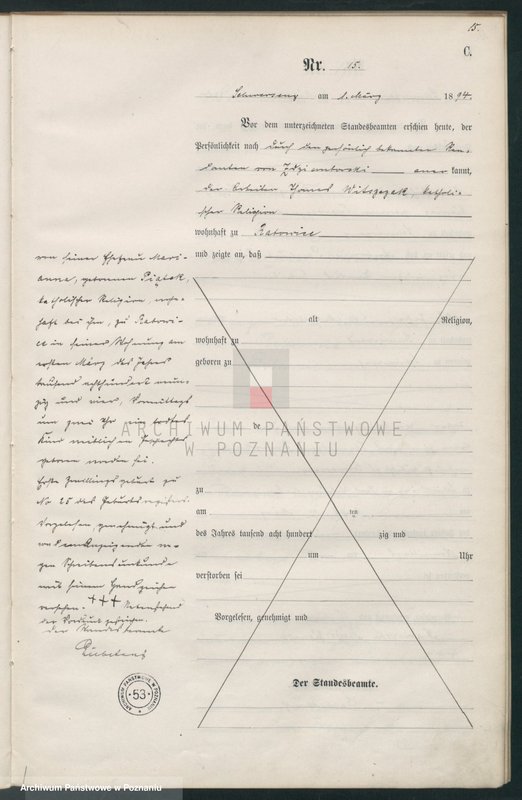 15.
C.
Nr. 15.
Schwersenz am 1. März 1894.
Vor dem unterzeichneten Standesbeamten erschien heute, der
Persönlichkeit nach durch den persönlich bekannten
von Zdziantorski aner kannt,
der Arbeiter Thomas katholi-
scher Religion
wohnhaft zu Katowice
und zeigte an, daß
von seiner Ehefrau Mari-
anna, geborenen Piątek,
katholischer Religion, wohn-
haft bei ihm, zu Katowi-
ce in seiner Wohnung am
ersten März des Jahres
tausend achthundert neun-
zig und vier, Vormittags
um zwei Uhr ein todtes
Kind weiblichen Geschlechts
geboren worden sei.
Erste Zwillingsgeburt zu
No 25 des Geburtsregisters.
Vorgelesen, genehmigt und
von dem Anzeigenden we-
gen Schreibensunkunde
mit seinem Handzeichen
versehen. +++ Nebenstehend
der Vordruck gestrichen.
Der Standesbeamte
alt Religion,
wohnhaft zu
geboren zu
de
zu
am ten
des Jahres tausend acht hundert zig und
um Uhr
verstorben sei
Vorgelesen, genehmigt und
Der Standesbeamte.
ARCHIWUM PAŃSTWOWE
W POZNANIU
ARCHIWUM PAŃSTWOWE W POZNANIU
53
Archiwum Państwowe w Poznaniu